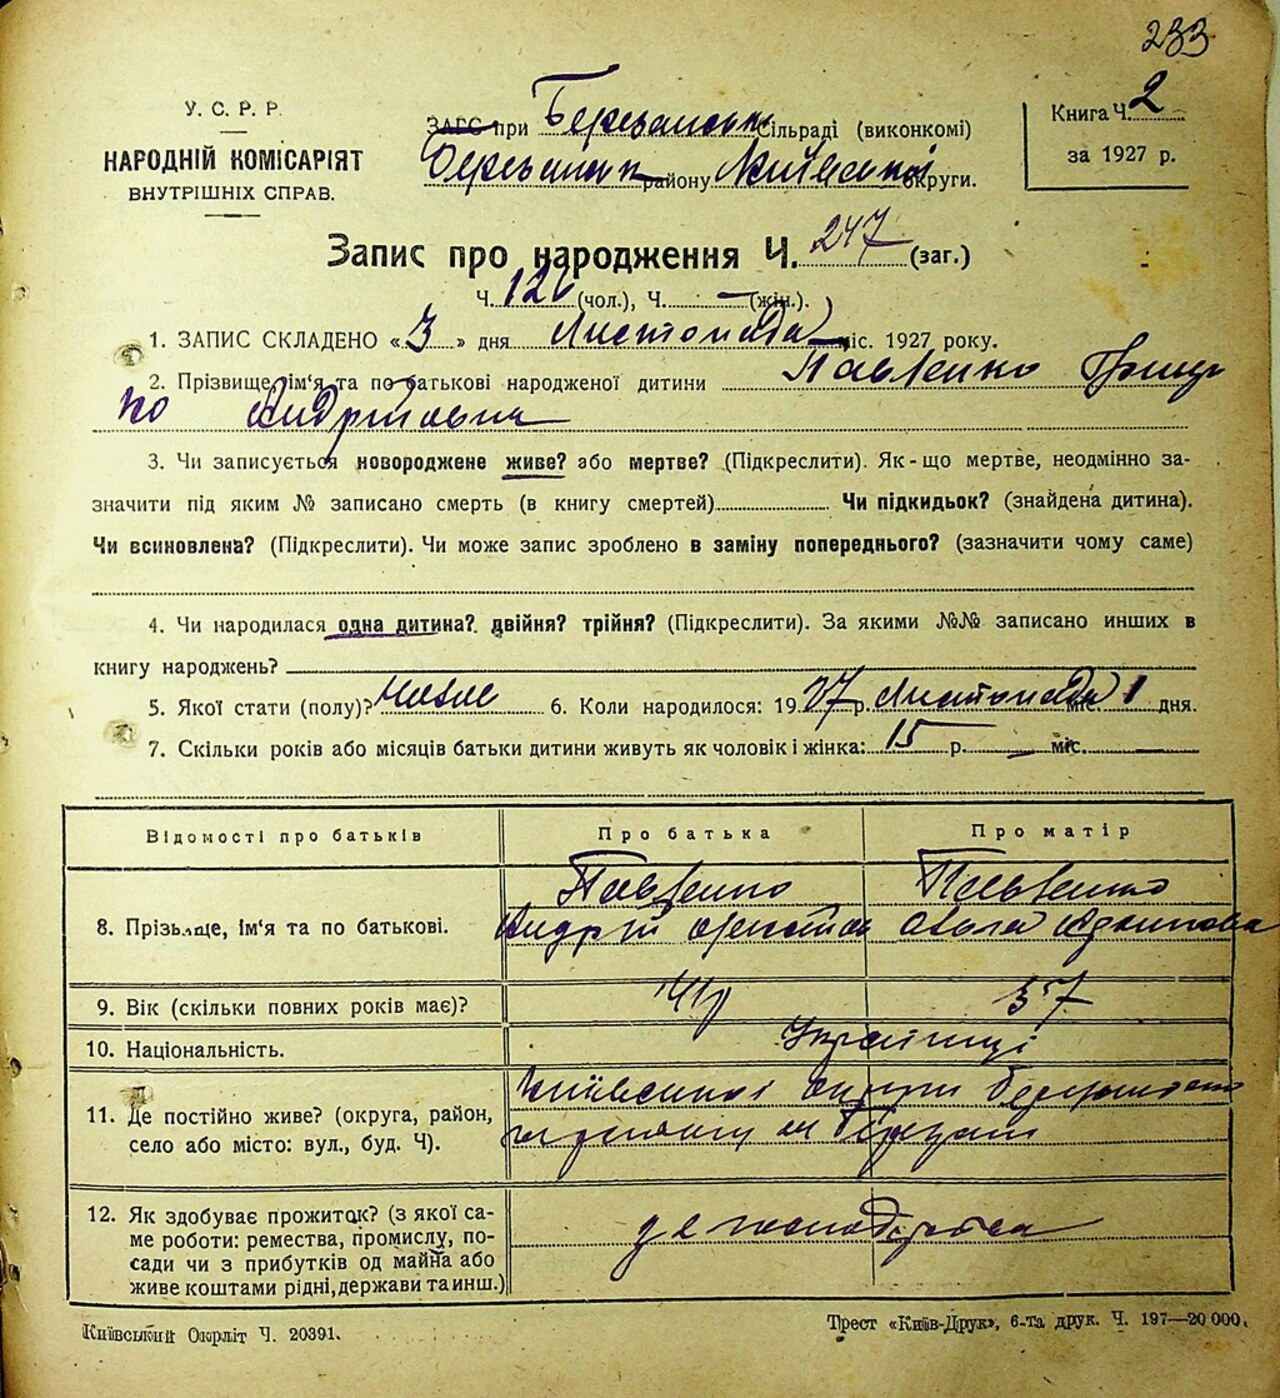 233
У. С. Р. Р.
НАРОДНІЙ КОМІСАРІЯТ
ВНУТРІШНІХ СПРАВ.
ЗАГС при Березанськ Сільраді (виконкомі)
Березанськ району Київської округи.
Книга Ч. 2
за 1927 р.
Запис про народження Ч. 247 (заг.)
Ч. 126 (чол.), Ч. — (жін.).
1. ЗАПИС СКЛАДЕНО «3» дня Листопада міс. 1927 року.
2. Прізвище, ім'я та по батькові народженої дитини Павленко Гриць
ко Андрійович
3. Чи записується новороджене живе? або мертве? (Підкреслити). Як-що мертве, неодмінно за-
значити під яким № записано смерть (в книгу смертей) Чи підкидьок? (знайдена дитина).
Чи всиновлена? (Підкреслити). Чи може запис зроблено в заміну попереднього? (зазначити чому саме)
4. Чи народилася одна дитина? двійня? трійня? (Підкреслити). За якими №№ записано инших в
книгу народжень?
5. Якої стати (полу)? чолов 6. Коли народилося: 1927 р. Листопада міс. 1 дня.
7. Скільки років або місяців батьки дитини живуть як чоловік і жінка: 15 р. — міс. —
Відомості про батьків Про батька Про матір
Павленко Павленко
8. Прізвище, ім'я та по батькові. Андрій Ольга
9. Вік (скільки повних років має)? 41р 37
10. Національність. Українці
11. Де постійно живе? (округа, район,
село або місто: вул., буд. Ч).
Київської округи Березанського
району м Березань
12. Як здобуває прожиток? (з якої са-
ме роботи: ремества, промислу, по-
сади чи з прибутків од майна або
живе коштами рідні, держави та инш.)
Київський Окрліт Ч. 20391.
Трест «Київ-Друк», 6-та друк. Ч. 197—20 000.